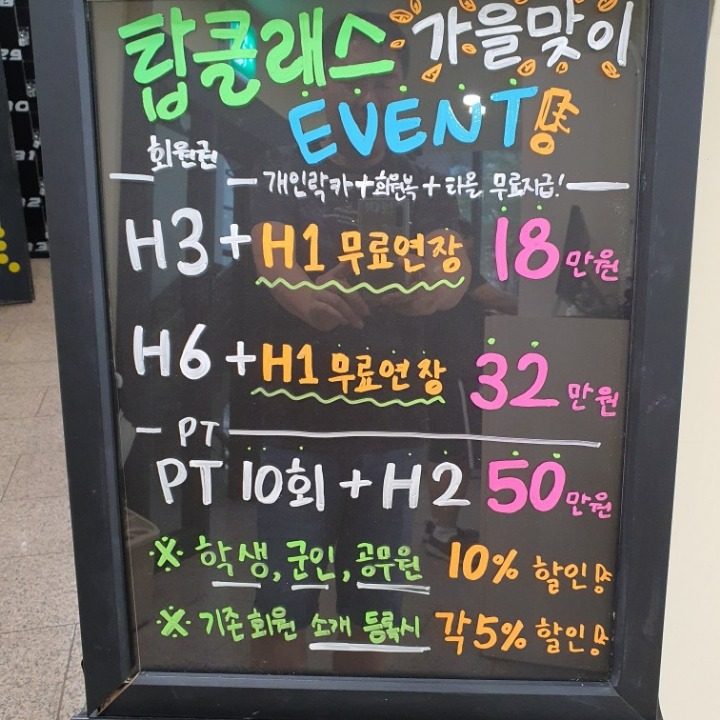 탑클래스 가을맞이
EVENT
회원권
개인락카+회원복+타올 무료지급!
H3+H1 무료연장 18만원
H6+H1 무료연장 32만원
PT
PT 10회+H2 50만원
※ 학생, 군인, 공무원 10% 할인
※ 기존회원 소개 등록시 각5% 할인